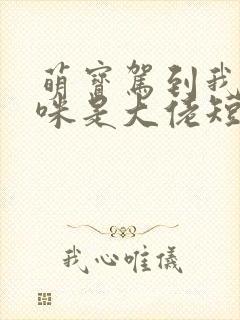 萌寳駕到我
咪是大佬短
我心唯儀